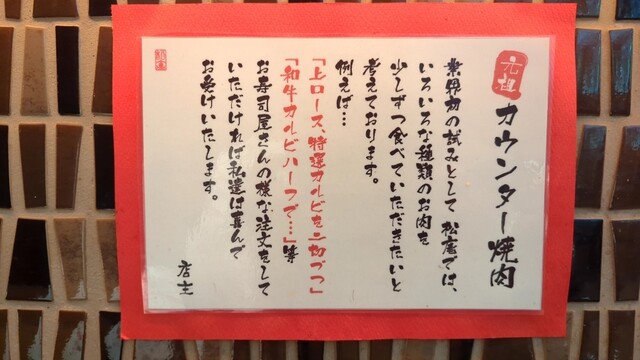 元祖
カウンター焼肉
業界初の試みとして 松慶では、
いろいろな種類のお肉を
少しずつ食べていただきたいと
考えております。
例えば…
「上ロース、特選カルビを二切づつ」
「和牛カルビハーフで…」等
お寿司屋さんの様な注文をして
いただければ私達は喜んで
お受けいたします。
店主